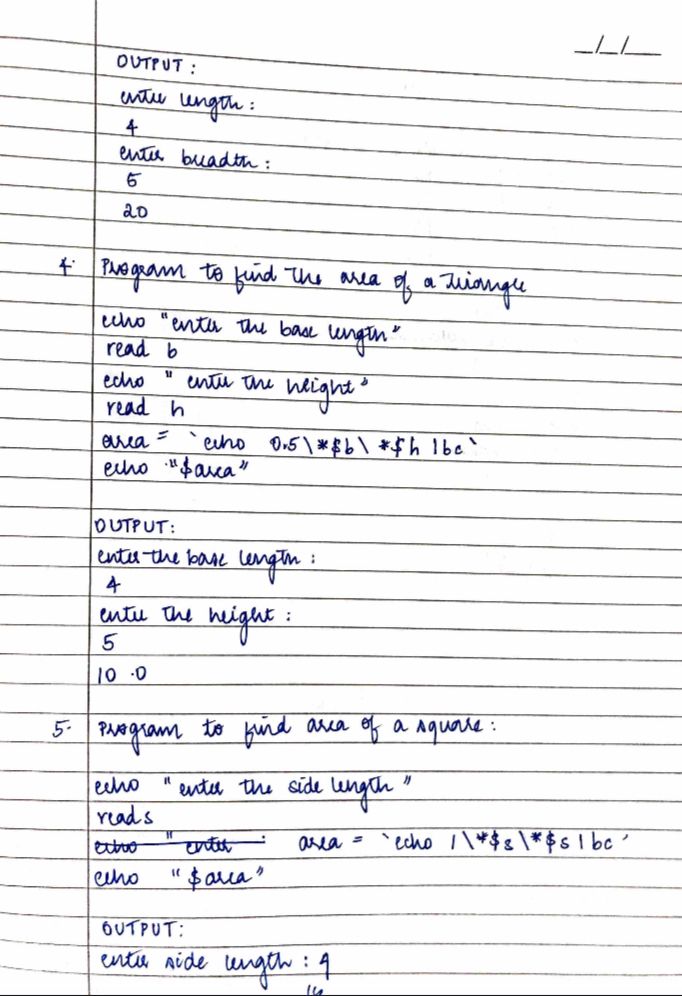 _/_/__
OUTPUT:
enter length:
4
enter breadth:
5
20
4. Program to find the area of a Triangle
echo "enter the base length"
read b
echo " enter the height"
read h
area = `echo 0.5\*$b\ *$h |bc`
echo "$area"
OUTPUT:
enter the base length:
4
enter the height:
5
10.0
5. Program to find area of a square:
echo "enter the side length"
read s
echo "enter area = `echo 1\*$s\*$s | bc`
echo "$area"
OUTPUT:
enter side length: 4